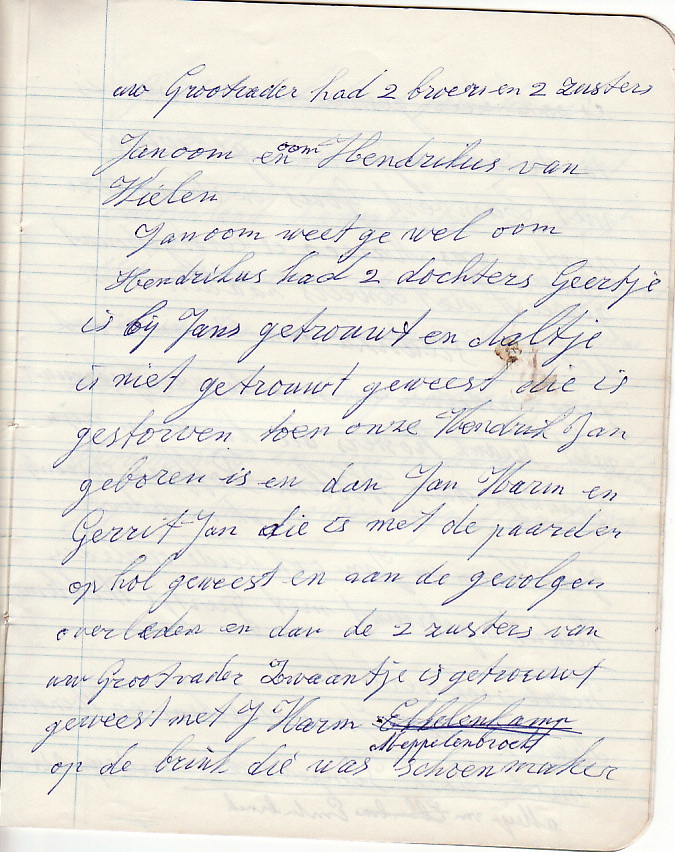 uw Grootvader had 2 broers en 2 zusters
Janoom en oom Hendrikus van
Wielen
Janoom weet ge wel oom
Hendrikus had 2 dochters Geertje
is bij Jans getrouwt en Aaltje
is niet getrouwt geweest die is
gestorven toen onze Hendrik Jan
geboren is en dan Jan Harm en
Gerrit Jan die is met de paarden
op hol geweest en aan de gevolgen
overleden en dan de 2 zusters van
uw Grootvader Zwaantje is getrouwt
geweest met J Harm
Meppelenbroek
op de brink die was schoenmaker